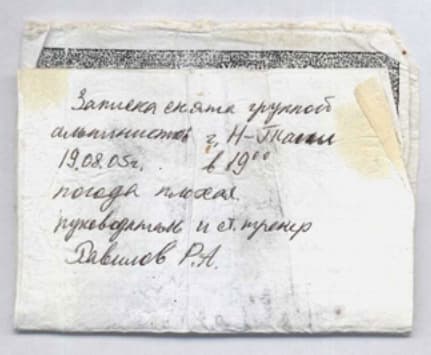 Записка снята группой
альпинистов г. Н-Тагил
19.08.05г. в 19⁰⁰
погода плохая.
руководитель и ст. тренер
Павилов Р.А.